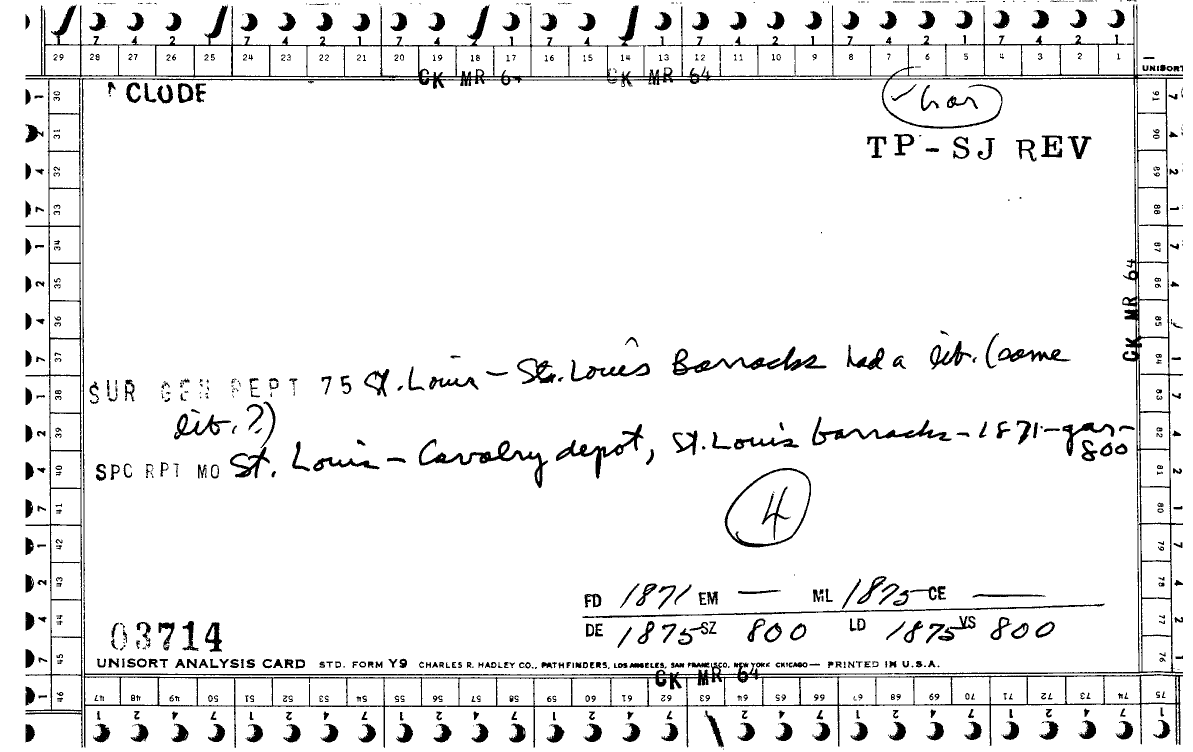 7 4 2 1 7 4 2 1 7 4 2 1 7 4 2 1 7 4 2 1 7 4 2 1 7 4 2 1
29 28 27 26 25 24 23 22 21 20 19 18 17 16 15 14 13 12 11 10 9 8 7 6 5 4 3 2 1
CK MR 64 CK MR 64
UNISORT
CLODE
TP-SJ REV
CK MR 64
SUR GEN DEPT 75 St. Louis - St. Louis Barracks had a lib. (same
lib.?)
SPC RPT MO St. Louis - Cavalry depot, St. Louis barracks - 1871 - gar-
800
4
FD 1871 EM — ML 1875 CE —
DE 1875 SZ 800 LD 1875 VS 800
03714
UNISORT ANALYSIS CARD STD. FORM Y9 CHARLES R. HADLEY CO., PATHFINDERS, LOS ANGELES, SAN FRANCISCO, NEW YORK CHICAGO — PRINTED IN U.S.A.
CK MR 64
46 47 48 49 50 51 52 53 54 55 56 57 58 59 60 61 62 63 64 65 66 67 68 69 70 71 72 73 74 75